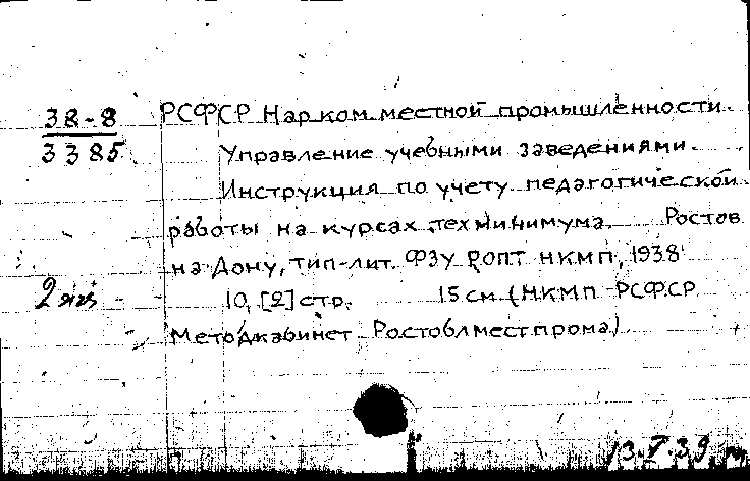 38-8
3385
РСФСР Нар. ком. местной промышленности.
Управление учебными заведениями.
Инструкция по учету педагогической
работы на курсах техминимума. Ростов
на Дону, тип-лит. ФЗУ РОПТ НКМП, 1938
10, [2] стр. 15 см. (НКМП РСФСР
Методкабинет Ростоблместпрома)
2 экз
13.V.39